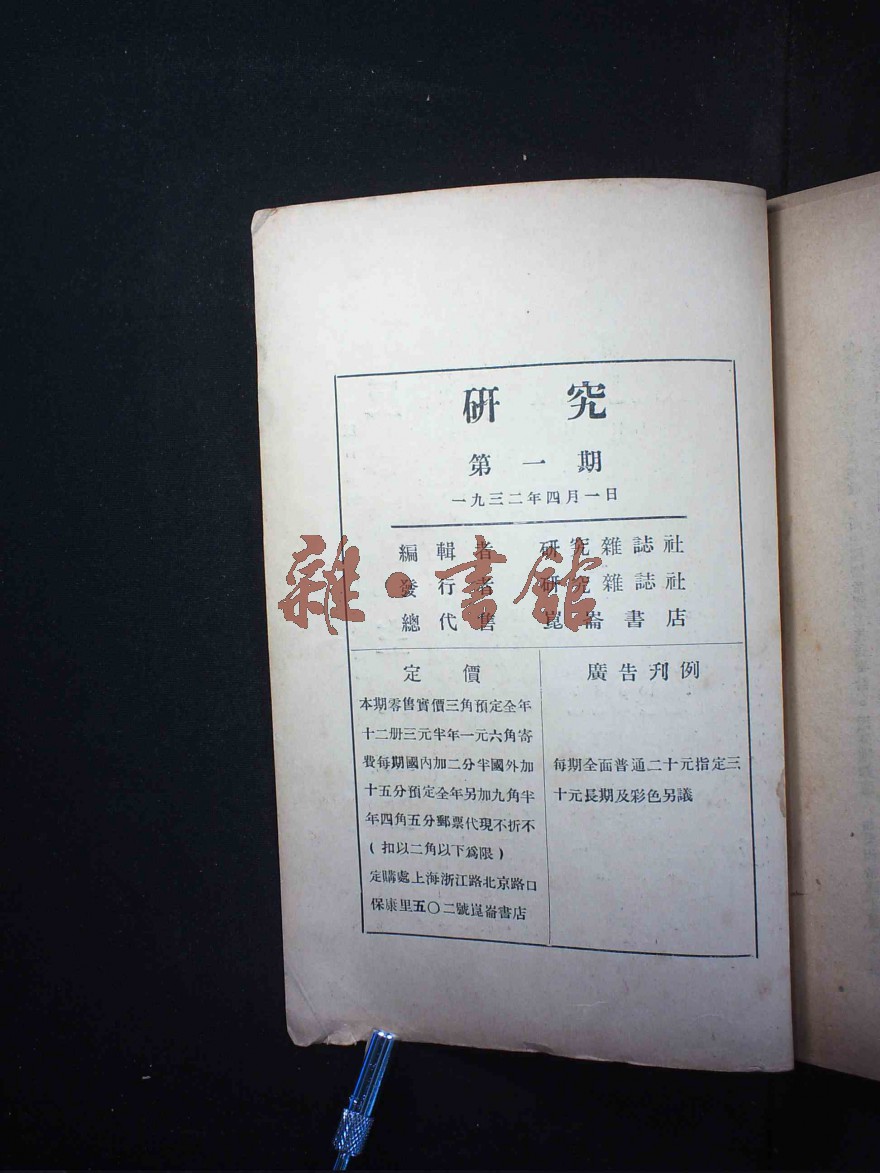 研究
第一期
一九三二年四月一日
編輯者 研究雜誌社
發行者 研究雜誌社
總代售 崑崙書店
雜·書館
定價
本期零售實價三角預定全年
十二册三元半年一元六角寄
費每期國內加二分半國外加
十五分預定全年另加九角半
年四角五分郵票代現不折不
(扣以二角以下爲限)
定購處上海浙江路北京路口
保康里五〇二號崑崙書店
廣告刋例
每期全面普通二十元指定三
十元長期及彩色另議